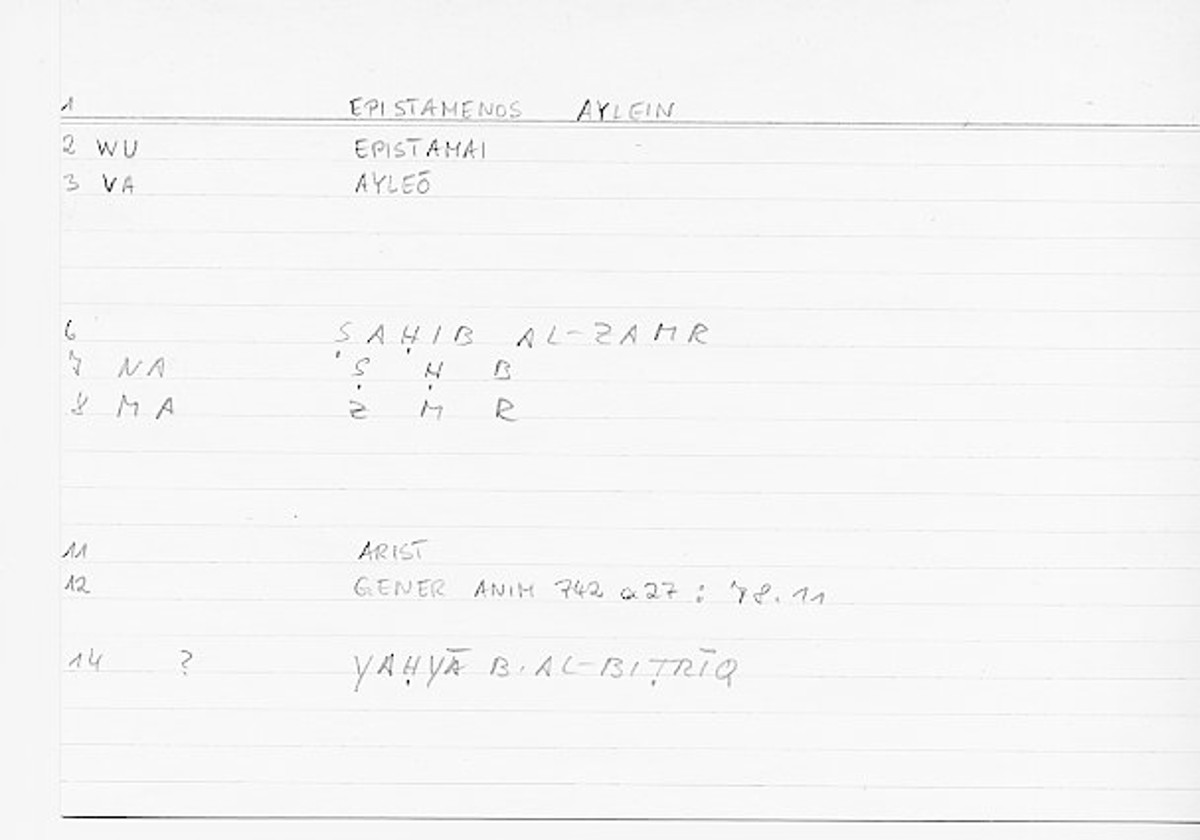 1 EPISTAMENOS AYLEIN
2 WU EPISTAMAI
3 VA AYLEŌ
6 ṢAḤIB AL-ZAMR
7 NA Ṣ Ḥ B
8 MA Z M R
11 ARIST
12 GENER ANIM 742 a27 : 78.11
14 ? YAḤYĀ B. AL-BIṬRĪQ